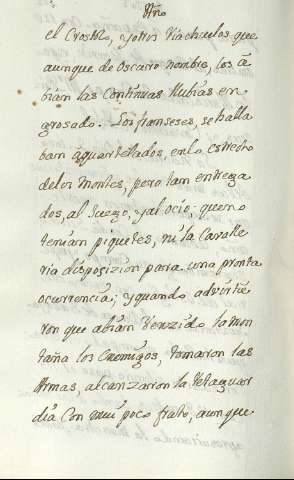 Año
el Crostolo, y otros Riachuelos que
aunque de oscuro nombre, los a
bian las Continuas llubias en
grosado. Los franseses, se halla
ban aquartelados, en lo estrecho
de los Montes, pero tam entrega
dos, al Juego, y al ocio, que no
tenian piquetes, ni la Cavalle
ria disposizion para una pronta
ocurrencia; y quando advirtie
ron que abian Venzido la mon
taña los Enemigos, tomaron las
Armas, alcanzaron la Retaguar
dia Con mui poco fruto, aunque